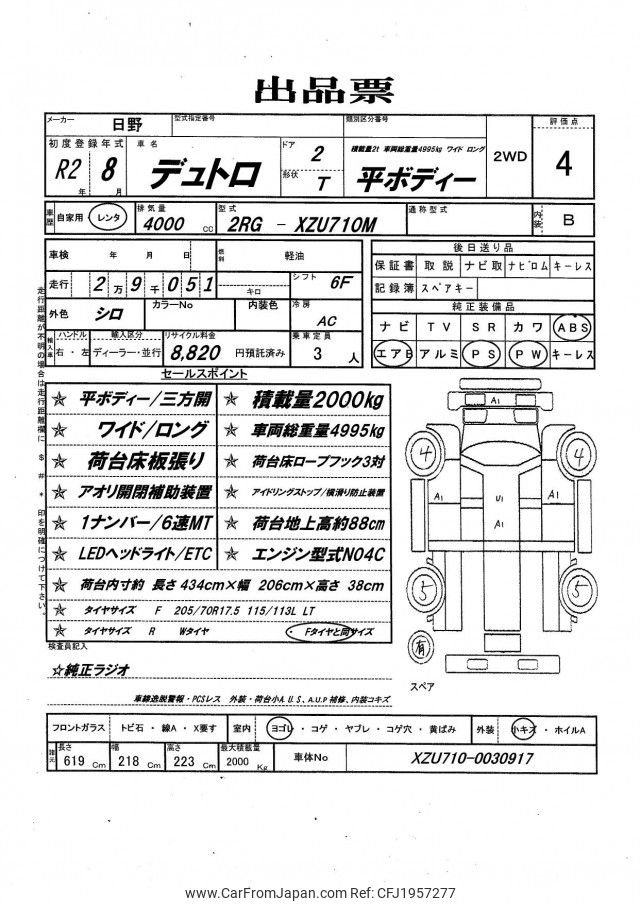 出品票
メーカー 日野 型式指定番号 類別区分番号 評価点
初度登録年式 車名 ドア 2 積載量2t 車両総重量4995kg ワイド ロング 2WD 4
R2年 8月 デュトロ 形状 T 平ボディー
車歴 自家用 レンタ 排気量 4000 cc 型式 2RG - XZU710M 通称型式 内装 B
車検 年 月 日 燃料 軽油 後日送り品
走行 2万9千051 キロ シフト 6F 保証書 取説 ナビ取 ナビロム キーレス
記録簿 スペアキー
外色 シロ カラーNo 内装色 冷房 AC 純正装備品
輸入車 ハンドル 右・左 輸入区分 ディーラー・並行 リサイクル料金 8,820 円預託済み 乗車定員 3 人
ナビ TV SR カワ ABS
エアB アルミ PS PW キーレス
走行距離が不明の場合は走行距離欄に $ # * 印を明確につけて下さい。
セールスポイント
☆ 平ボディー/三方開 ☆ 積載量2000kg
☆ ワイド/ロング ☆ 車両総重量4995kg
☆ 荷台床板張り ☆ 荷台床ロープフック3対
☆ アオリ開閉補助装置 ☆ アイドリングストップ/横滑り防止装置
☆ 1ナンバー/6速MT ☆ 荷台地上高約88cm
☆ LEDヘッドライト/ETC ☆ エンジン型式N04C
☆ 荷台内寸約 長さ 434cm×幅 206cm×高さ 38cm
☆ タイヤサイズ F 205/70R17.5 115/113L LT
☆ タイヤサイズ R Wタイヤ ・Fタイヤと同サイズ
A1
4 4
A1 U1 A1
A1
5 5
有
スペア
検査員記入
☆純正ラジオ
車線逸脱警報・PCSレス 外装・荷台小A.U.S、A.U.P補修、内装コキズ
フロントガラス トビ石・線A・X要す 室内 ヨゴレ・コゲ・ヤブレ・コゲ穴・黄ばみ 外装 小キズ・ホイルA
諸元 長さ 619 Cm 幅 218 Cm 高さ 223 Cm 最大積載量 2000 Kg 車体No XZU710-0030917
www.CarFromJapan.com Ref:CFJ1957277